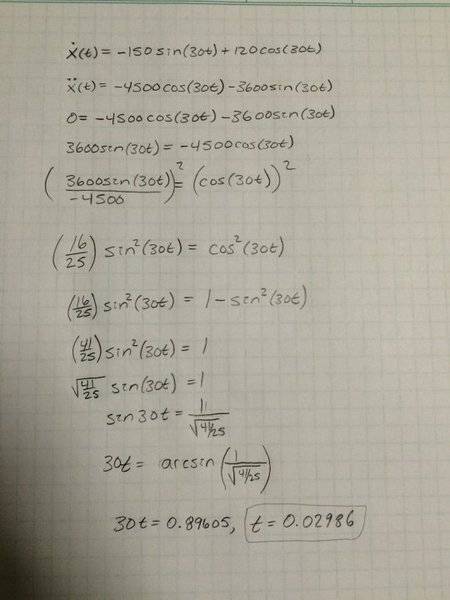 ẋ(t) = -150 sin(30t) + 120cos(30t)
ẍ(t) = -4500cos(30t) - 3600sin(30t)
0 = -4500cos(30t) - 3600sin(30t)
3600sin(30t) = -4500cos(30t)
(3600sin(30t)/-4500)² = (cos(30t))²
(16/25) sin²(30t) = cos²(30t)
(16/25) sin²(30t) = 1 - sin²(30t)
(41/25) sin²(30t) = 1
√(41/25) sin(30t) = 1
sin 30t = 1/√(41/25)
30t = arcsin(1/√(41/25))
30t = 0.89605, t = 0.02986